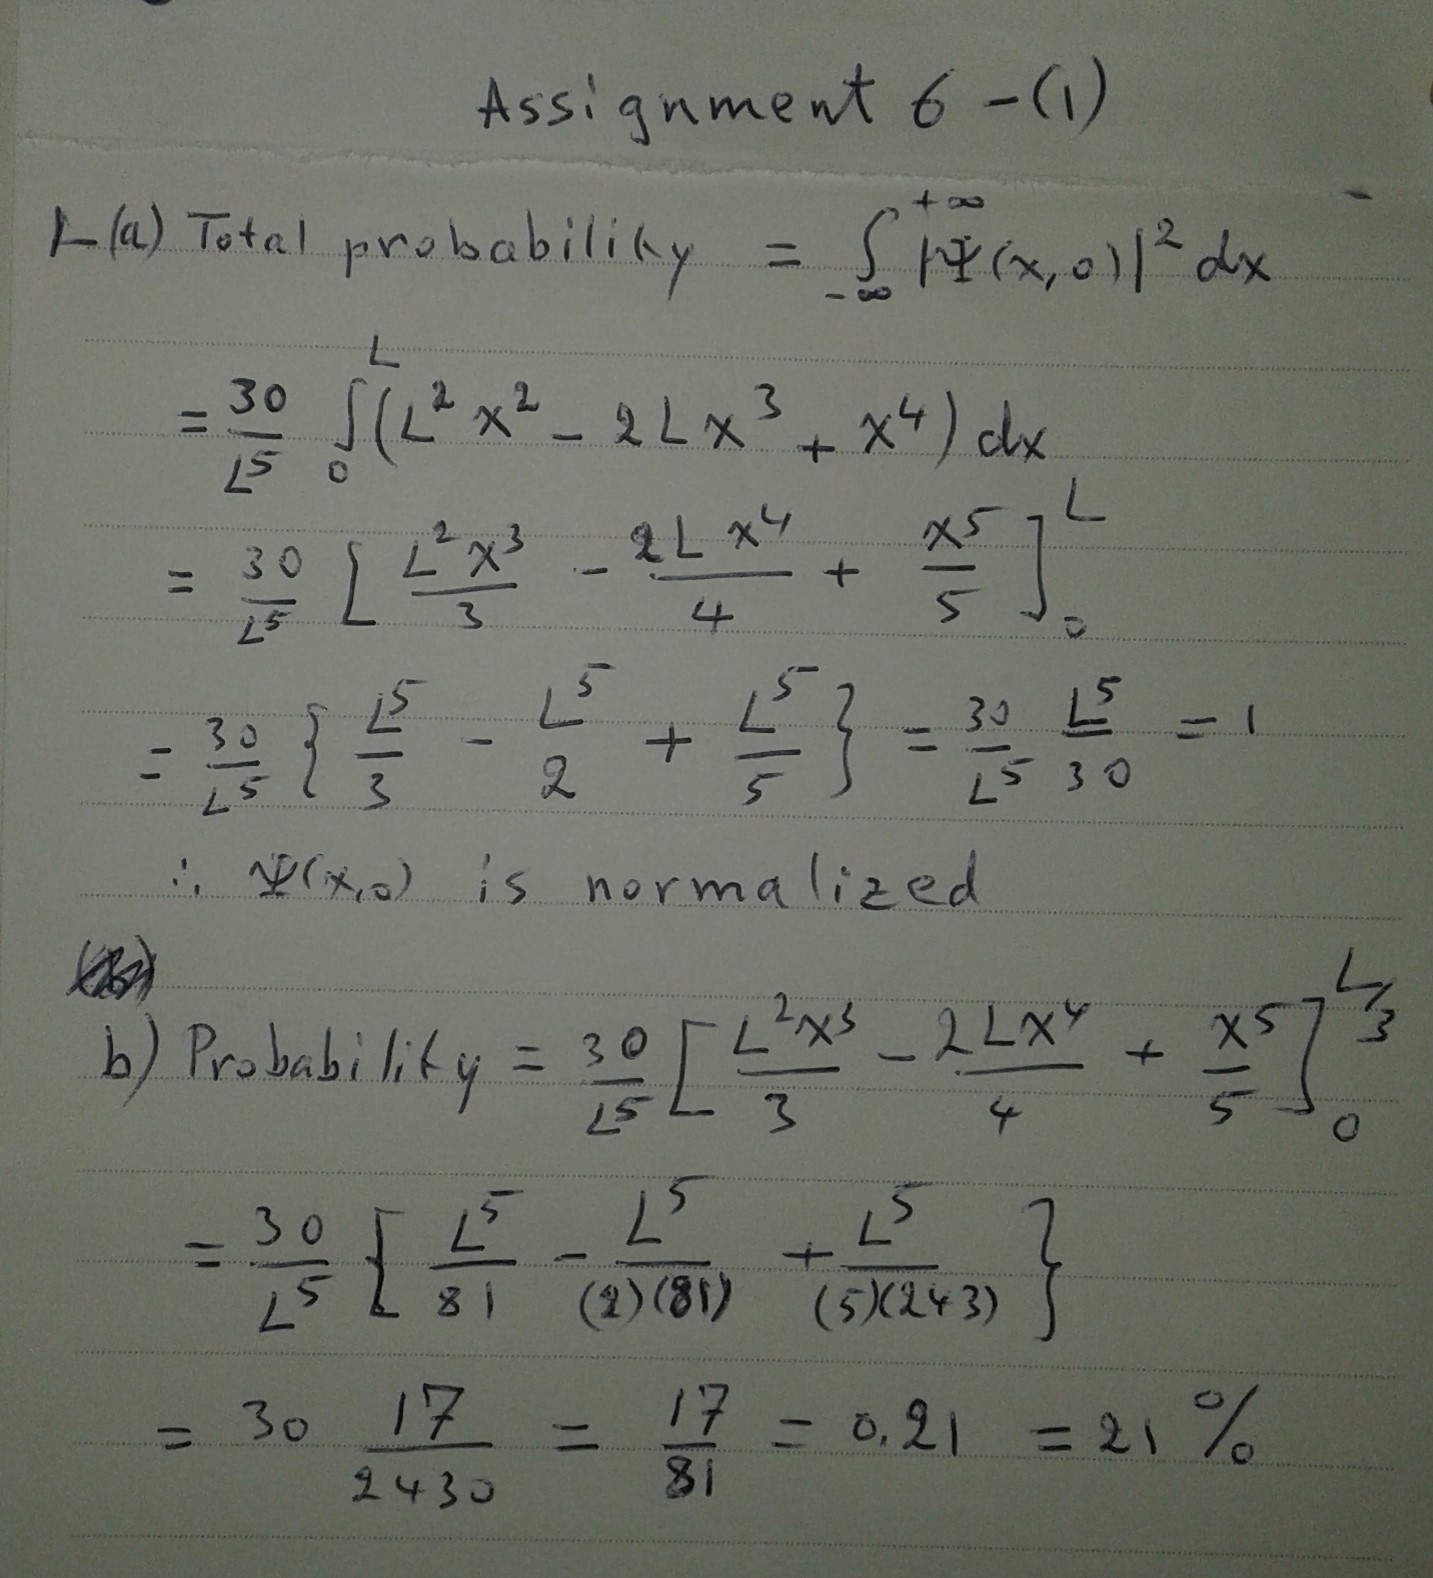 Assignment 6 - (1)
1-(a) Total probability = ∫_{-∞}^{+∞} |Ψ(x,0)|² dx
= 30/L⁵ ∫_0^L (L²x² - 2Lx³ + x⁴) dx
= 30/L⁵ [L²x³/3 - 2Lx⁴/4 + x⁵/5]_0^L
= 30/L⁵ {L⁵/3 - L⁵/2 + L⁵/5} = 30/L⁵ L⁵/30 = 1
∴ Ψ(x,0) is normalized
b) Probability = 30/L⁵ [L²x³/3 - 2Lx⁴/4 + x⁵/5]_0^{L/3}
= 30/L⁵ {L⁵/81 - L⁵/(2)(81) + L⁵/(5)(243)}
= 30 17/2430 = 17/81 = 0.21 = 21 %